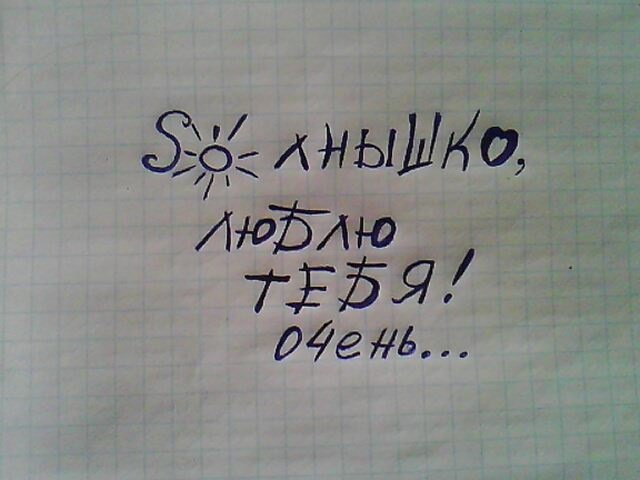 SОЛНЫШКО,
ЛЮБЛЮ
ТЕБЯ!
очень...